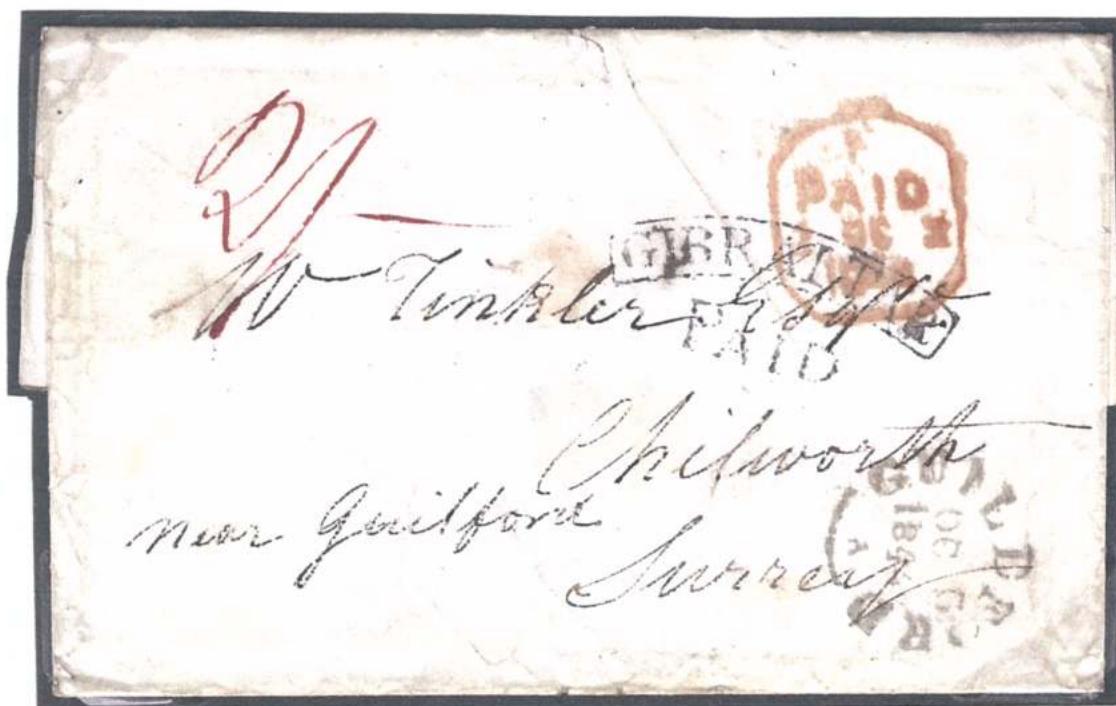 2/
PAID
GIBRALTAR
PAID
W Tinkler Esqre
Chilworth
near Guilford
Surrey
OC
184